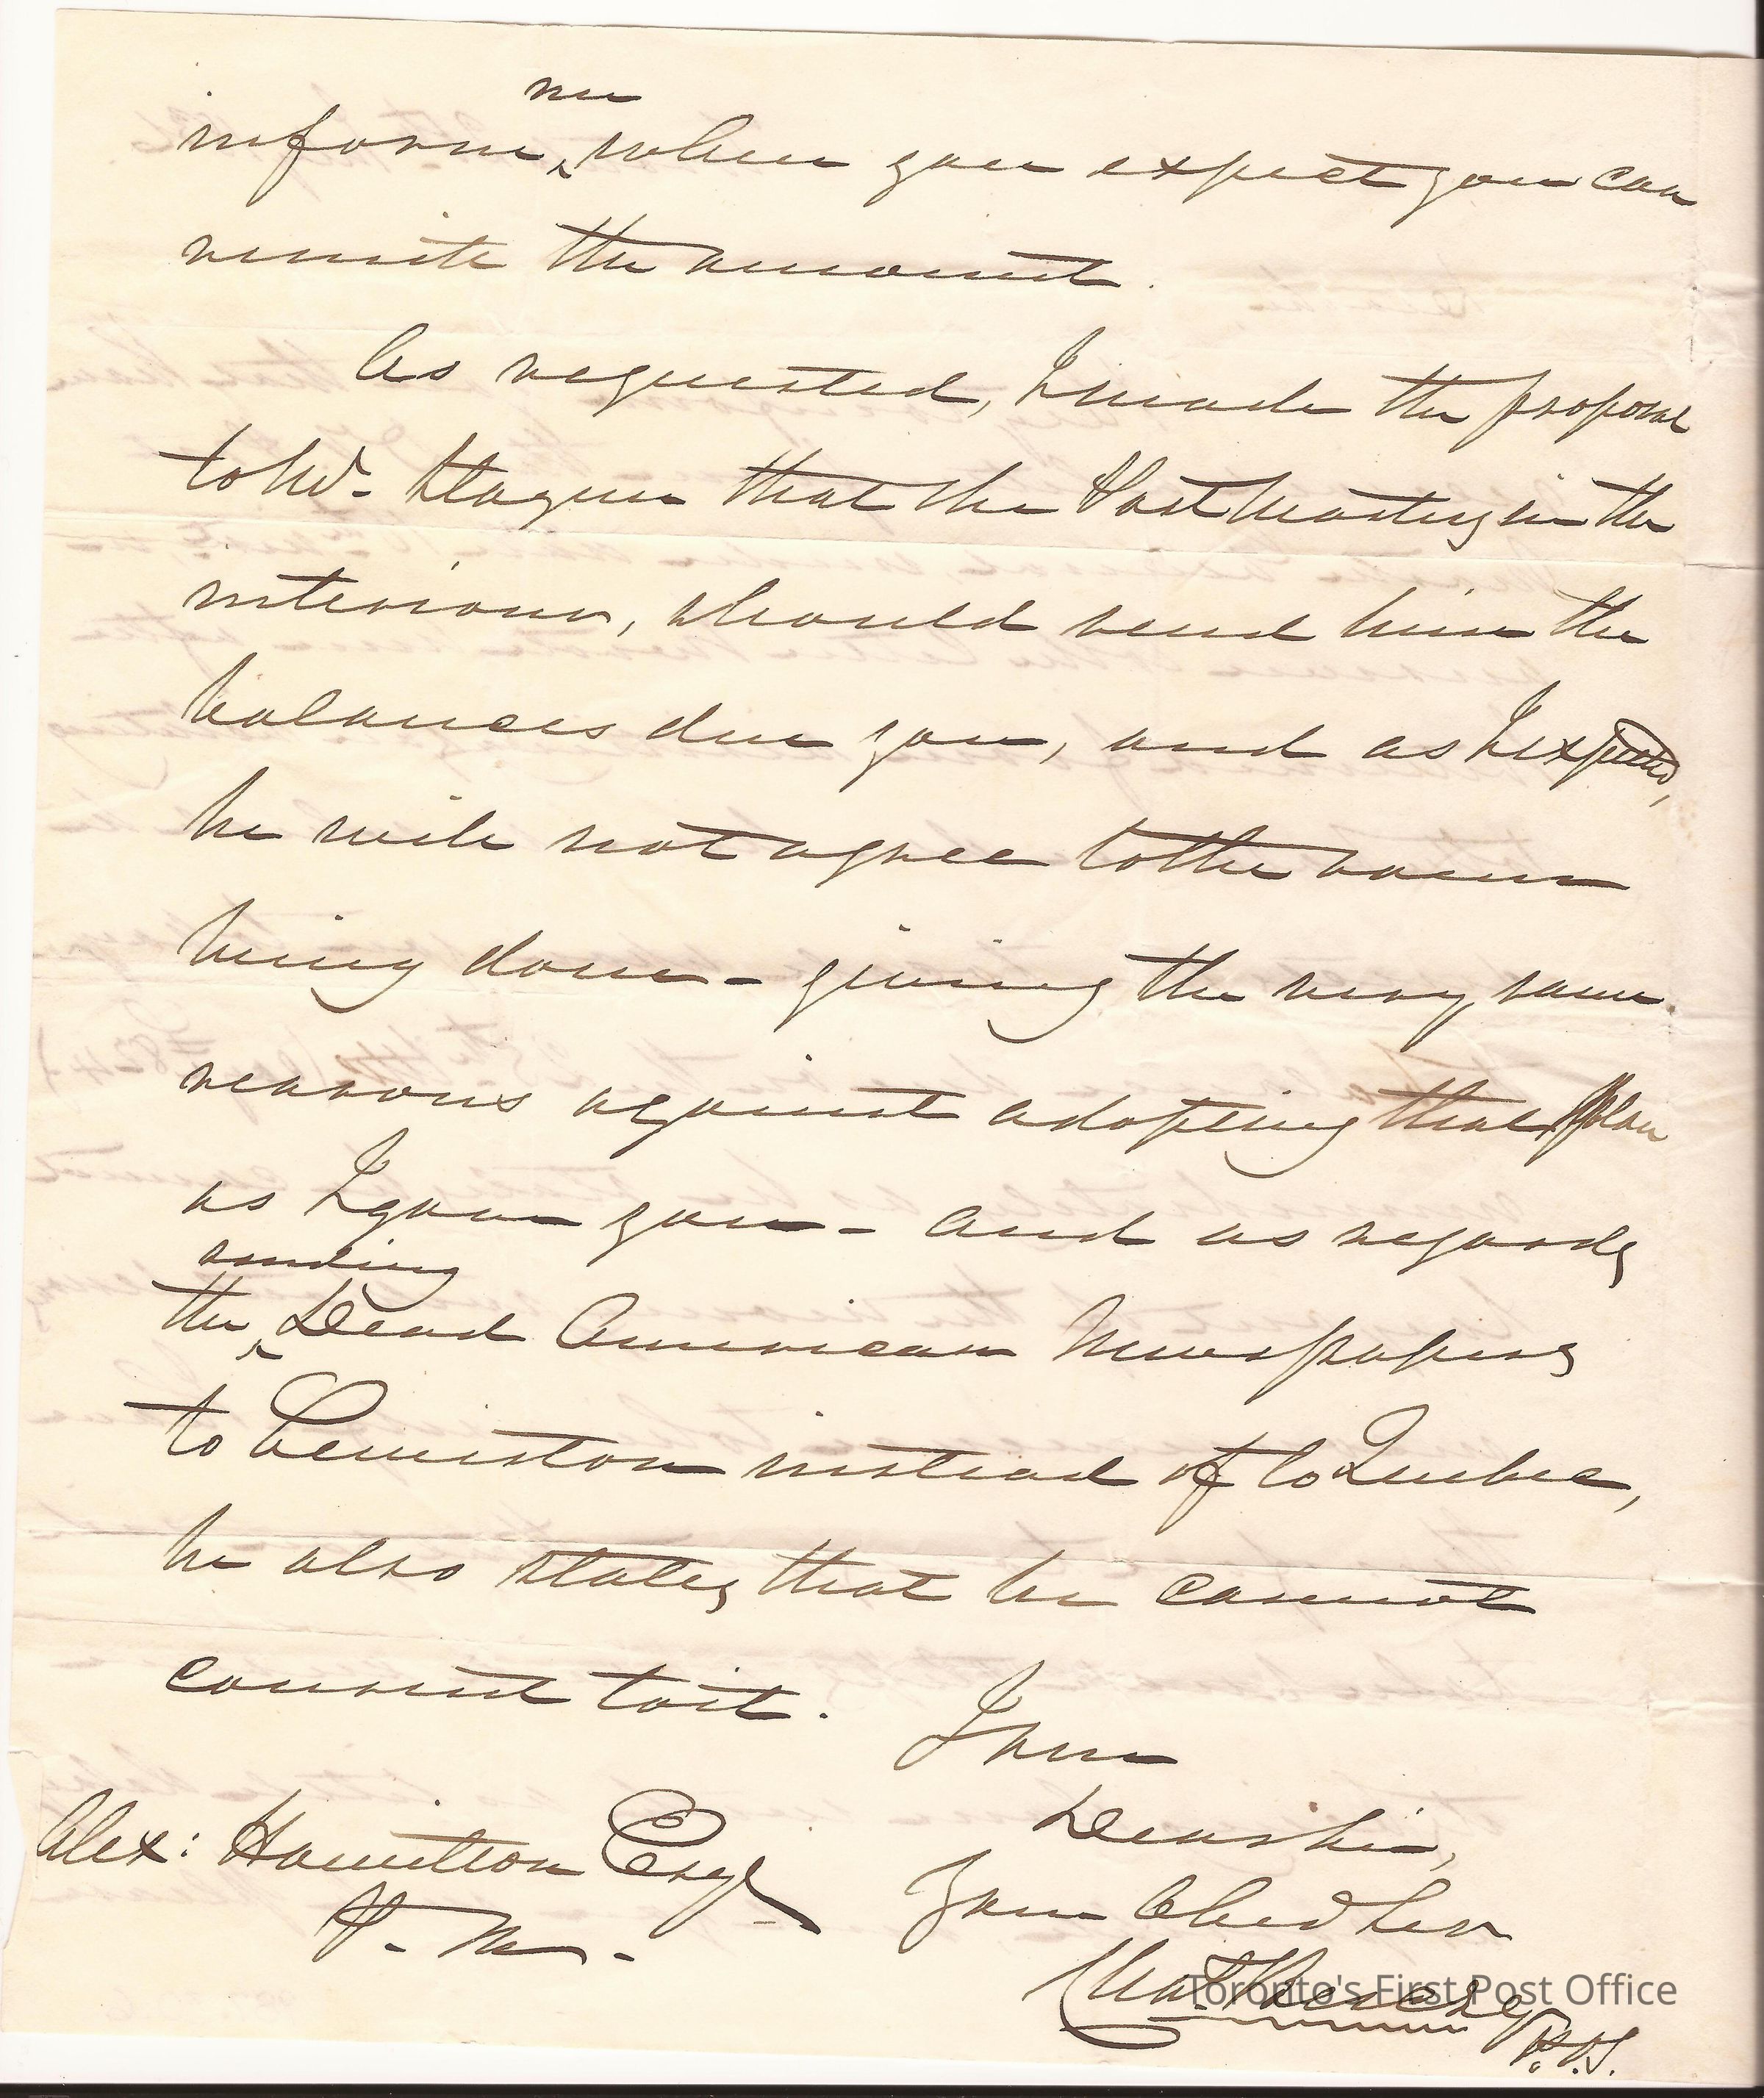 me
inform ‸ when you expect you can
remit the amount.
As requested, I made the proposal
to Mr. Stayner that the Post Masters in the
interiour, should send him the
balances due you, and as I expected,
he will not agree to the same
being done - giving the very same
reasons against adopting that plan
as I gave you - and as regards
sending
the ‸ Dead American Newspapers
to Lewiston instead of to Quebec,
he also states that he cannot
consent to it.
I am
Dear Sir,
Your Obed Ser
Alex: Hamilton Esqr
P. M.
Chas. Berczy
P.O.S.
Toronto's First Post Office